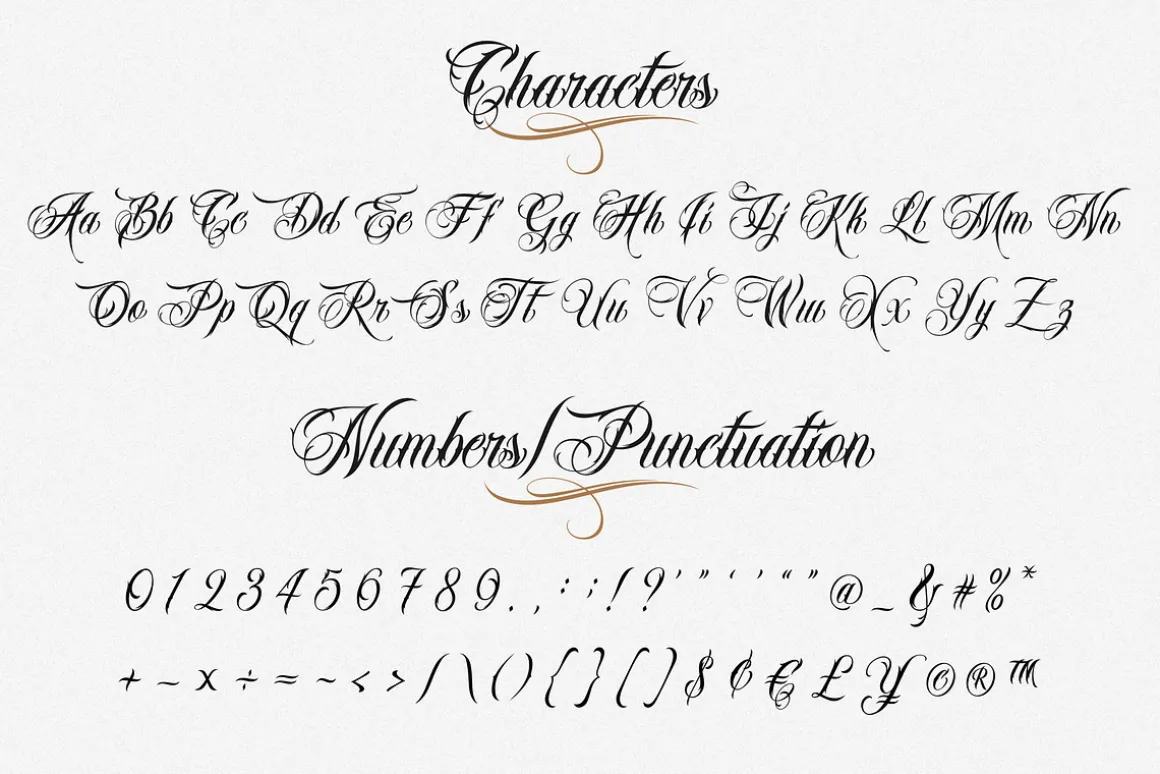 Characters
Aa Bb Cc Dd Ee Ff Gg Hh Ii Jj Kk Ll Mm Nn
Oo Pp Qq Rr Ss Tt Uu Vv Ww Xx Yy Zz
Numbers/Punctuation
0 1 2 3 4 5 6 7 8 9 . , : ; ! ? ' " ‘ ’ “ ” @ _ & # % *
+ – x ÷ = ~ < > / \ ( ) { } [ ] $ ¢ € £ ¥ © ® ™